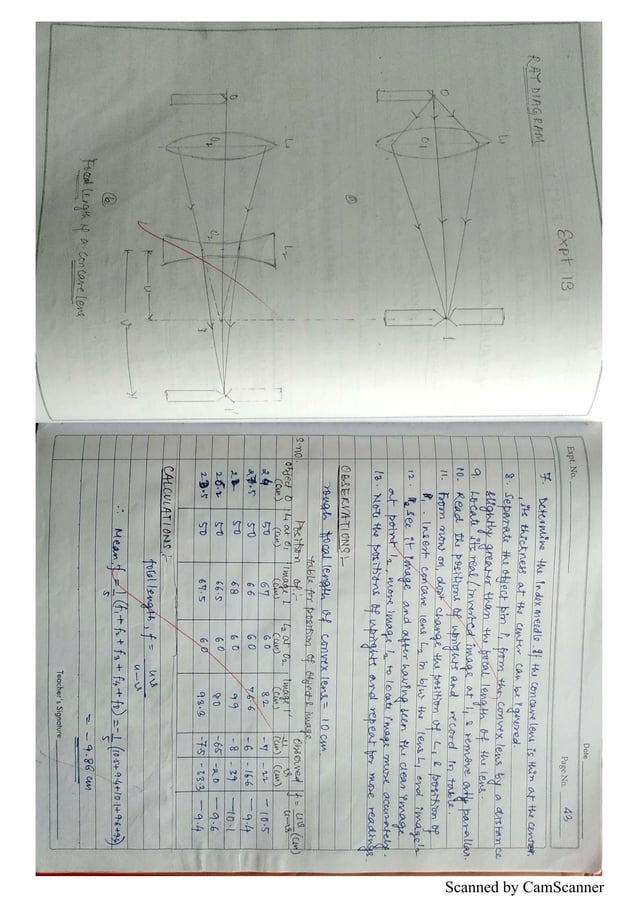 Expt 13
RAY DIAGRAM
L1
O
O1
I
(a)
L1
L2
O
O2
O2
I
I'
u
v
(b)
Focal length of a concave lens
Date
Expt. No.
Page No. 43
7. Determine the Index needle of the concave lens is thin at the center,
, its thickness at the center can be ignored
8. Separate the object pin P, from the convex lens by a distance
slightly greater than the focal length of the lens.
9. Locate its real/inverted image at I, & remove any parallax.
10. Read the positions of upright and record in table.
11. From now on, dont change the position of L1 & position of
P1. Insert concave lens L2 in b/w the lens L1 and image I
12. See it image and after having seen the clear image
at point I2 move image I2 to locate image more accurately.
13. Note the positions of uprights and repeat for more readings.
OBSERVATIONS:-
rough focal length of convex lens = 10 cm
table for position of object & image
S.no. Position of:- observed f = uv/u-v (cm)
object O (cm) L1 at O1 (cm) image I (cm) L2 at O2 (cm) Image I' (cm) u (cm) v (cm)
24 50 67 60 82 -7 -22 -10.5
27.5 50 66 60 76.6 -6 -16.6 -9.4
22 50 68 60 99 -8 -39 -10.1
26.2 50 66.5 60 80 -65 -20 -9.6
23.5 50 67.5 60 93.3 -7.5 -33.3 -9.4
CALCULATIONS:-
focal length, f = uv/u-v
∴ Mean f = 1/5 (f1+f2+f3+f4+f5) = -1/5 (10.5+9.4+10.1+9.6+9.4)
= -9.86 cm
Teacher's Signature
Scanned by CamScanner